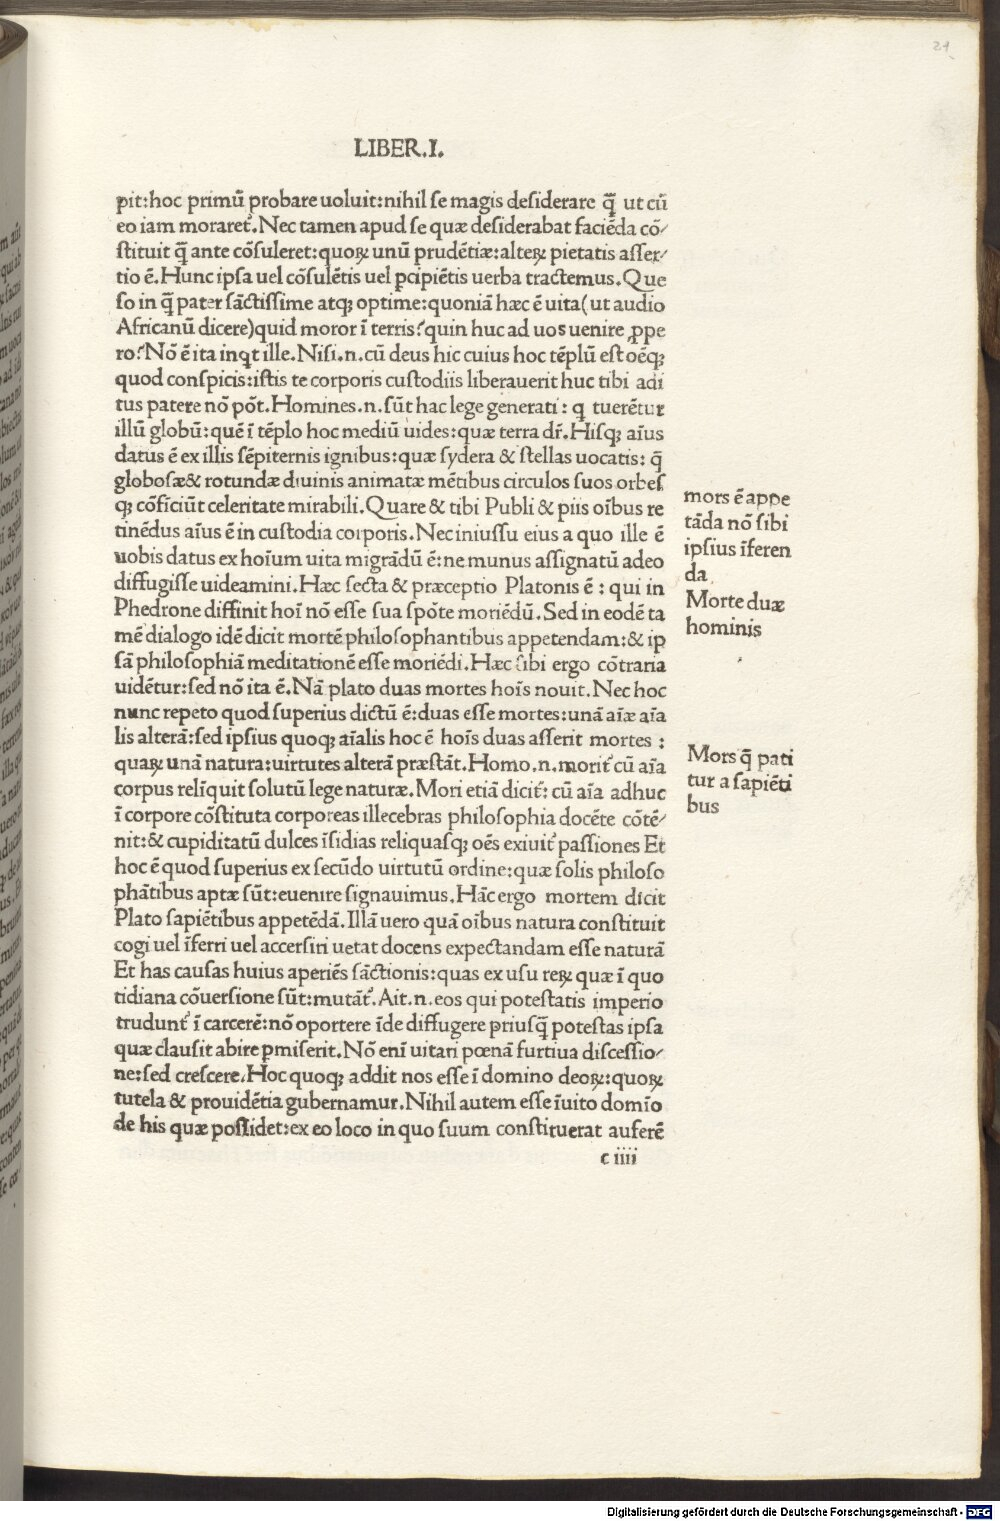 21
LIBER.I.
pit:hoc primū probare uoluit:nihil se magis desiderare q̄ ut cū
eo iam moraret᷑. Nec tamen apud se quæ desiderabat faciēda cō⸗
stituit q̄ ante cōsuleret:quoꝝ unū prudētiæ:alteꝝ pietatis asser⸗
tio ē. Hunc ipsa uel cōsulētis uel pcipiētis uerba tractemus. Que
so in q̄ pater sāctissime atqꝫ optime:quoniā hæc ē uita(ut audio
Africanū dicere)quid moror ī terris?quin huc ad uos uenire ꝓpe
ro?Nō ē ita inqt ille. Nisi.n.cū deus hic cuius hoc tēplū est oēqꝫ
quod conspicis:istis te corporis custodiis liberauerit huc tibi adi
tus patere nō pōt. Homines.n.sūt hac lege generati: q tuerētur
illū globū:quē ī tēplo hoc mediū uides:quæ terra dr̄. Hisqꝫ aīus
datus ē ex illis sēpiternis ignibus:quæ sydera & stellas uocatis: q̄
globosæ& rotundæ diuinis animatæ mētibus circulos suos orbes
qꝫ cōficiūt celeritate mirabili. Quare & tibi Publi & piis oībus re
tinēdus aīus ē in custodia corporis. Nec iniussu eius a quo ille ē
uobis datus ex hoīum uita migrādū ē:ne munus assignatū adeo
diffugisse uideamini. Hæc secta & præceptio Platonis ē : qui in
Phedrone diffinit hoī nō esse sua spōte moriēdū. Sed in eodē ta
mē dialogo idē dicit mortē philosophantibus appetendam:& ip
sā philosophiā meditationē esse moriēdi. Hæc sibi ergo cōtraria
uidētur:sed nō ita ē. Nā plato duas mortes hoīs nouit. Nec hoc
nunc repeto quod superius dictū ē:duas esse mortes:unā aīæ aīa
lis alterā:sed ipsius quoqꝫ aīalis hoc ē hoīs duas asserit mortes :
quaꝝ unā natura:uirtutes alterā præstāt. Homo.n.morit᷑ cū aīa
corpus relīquit solutū lege naturæ. Mori etiā dicit᷑: cū aīa adhuc
ī corpore cōstituta corporeas illecebras philosophia docēte cōtē⸗
nit:& cupiditatū dulces īsidias reliquasqꝫ oēs exiuit᷑ passiones Et
hoc ē quod superius ex secūdo uirtutū ordine:quæ solis philoso
phātibus aptæ sūt:euenire signauimus. Hāc ergo mortem dicit
Plato sapiētibus appetēdā. Illā uero quā oībus natura constituit
cogi uel īferri uel accersiri uetat docens expectandam esse naturā
Et has causas huius aperiēs sāctionis:quas ex usu reꝝ quæ ī quo
tidiana cōuersione sūt:mutāt᷑. Ait.n.eos qui potestatis imperio
trudunt᷑ ī carcerē:nō oportere īde diffugere priusq̄ potestas ipsa
quæ clausit abire pmiserit. Nō enī uitari pœnā furtiua discessio⸗
ne:sed crescere. Hoc quoqꝫ addit nos esse ī domino deoꝝ:quoꝝ
tutela & prouidētia gubernamur. Nihil autem esse īuito domīo
de his quæ possidet:ex eo loco in quo suum constituerat auferē
c iiii
mors ē appe
tāda nō sibi
ipsius īferen
da
Morte duæ
hominis
Mors q̄ pati
tur a sapiēti
bus
Digitalisierung gefördert durch die Deutsche Forschungsgemeinschaft - DFG